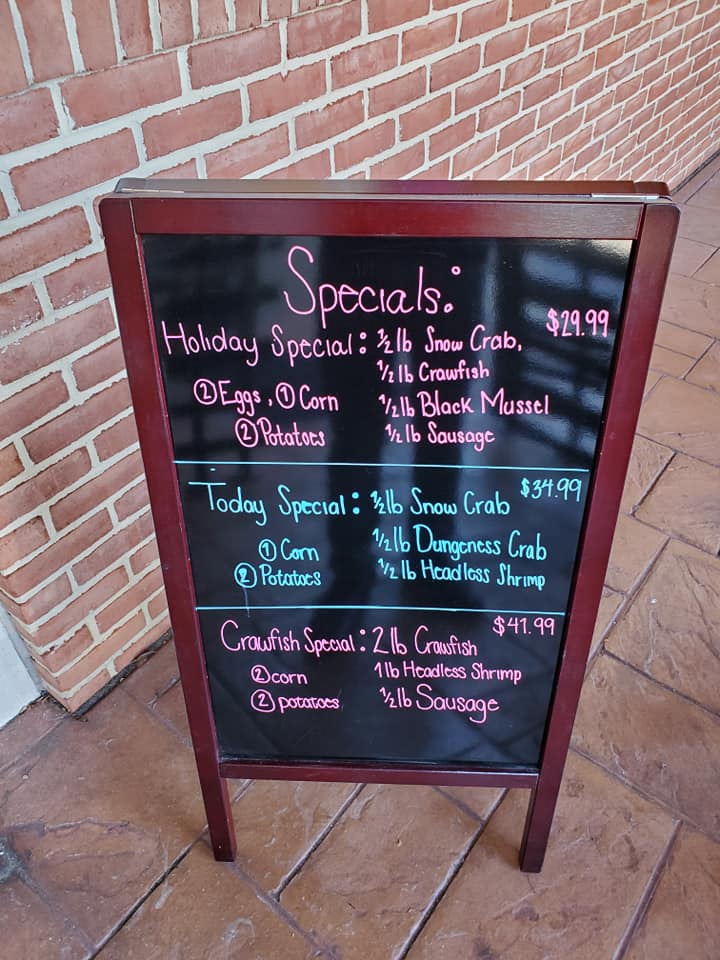 Specials:
$29.99
Holiday Special: 1/2 lb Snow Crab,
1/2 lb Crawfish
② Eggs, ① Corn 1/2 lb Black Mussel
② Potatoes 1/2 lb Sausage
$34.99
Today Special: 1/2 lb Snow Crab
① Corn 1/2 lb Dungeness Crab
② Potatoes 1/2 lb Headless Shrimp
$41.99
Crawfish Special: 2 lb Crawfish
② corn 1 lb Headless Shrimp
② potatoes 1/2 lb Sausage